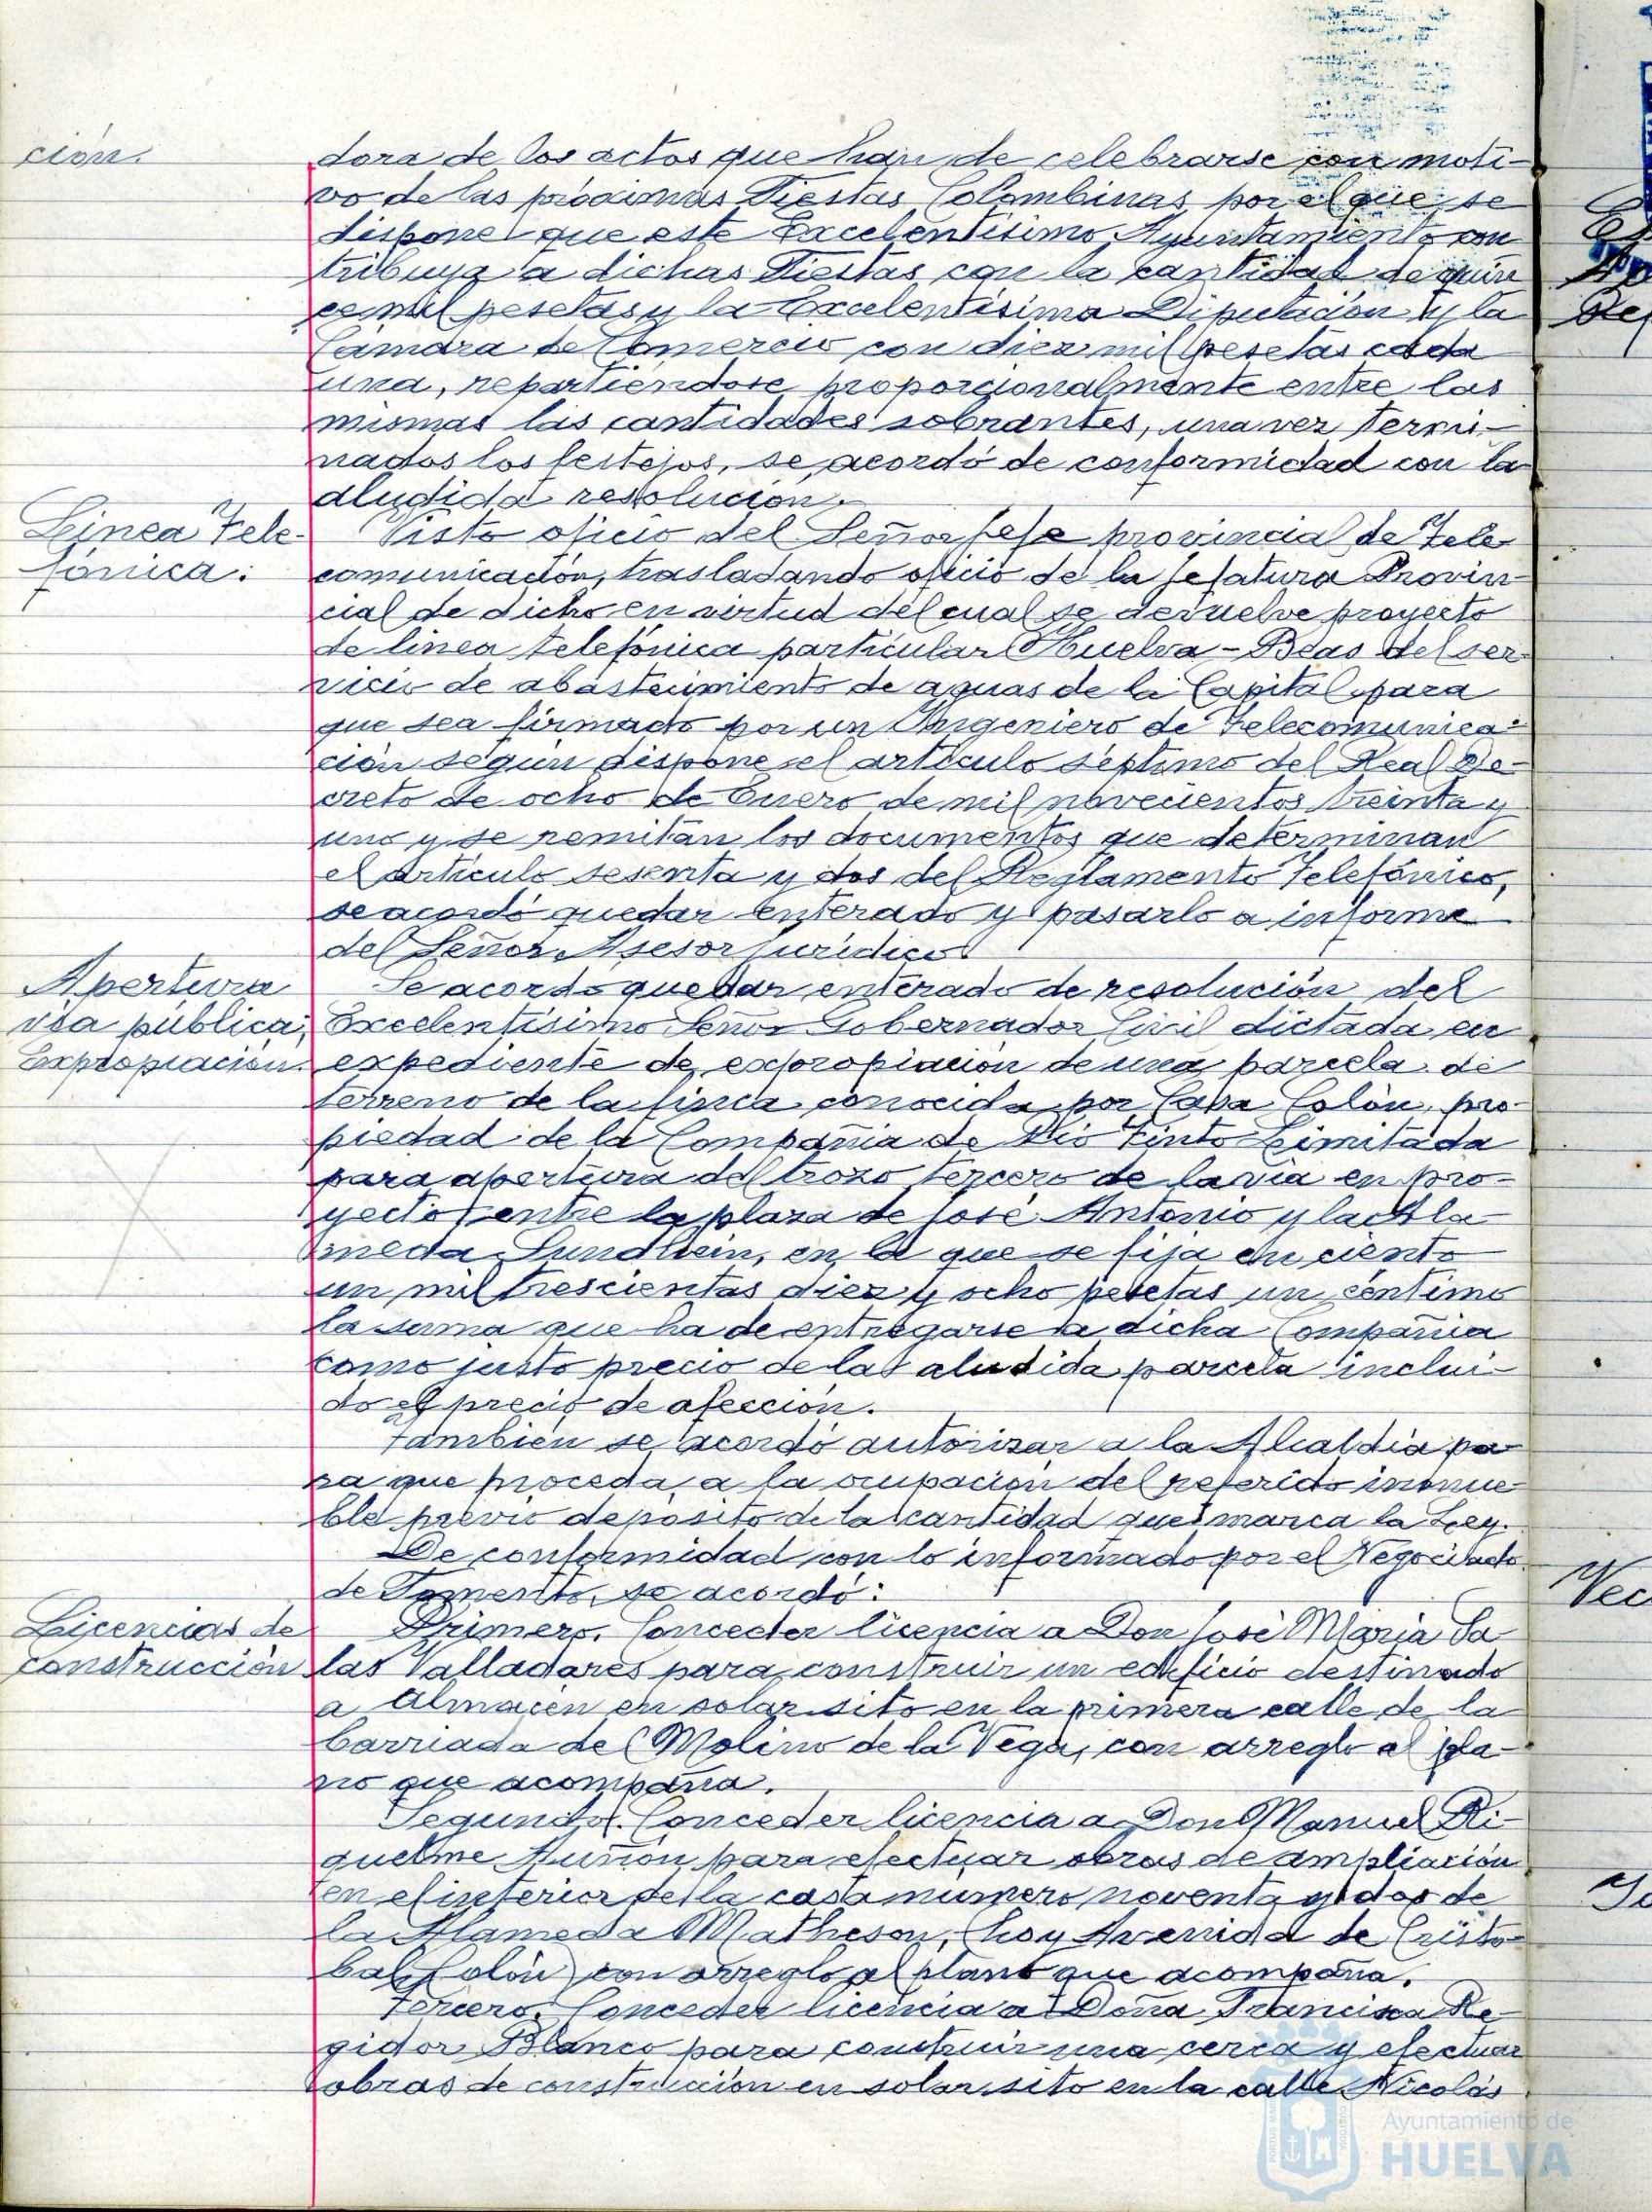 ción.
dora de los actos que han de celebrarse con moti-
vo de las próximas Fiestas Colombinas por el que se
dispone que este Excelentísimo Ayuntamiento con
tribuya a dichas Fiestas con la cantidad de quin
ce mil pesetas y la Excelentísima Diputación y la
Cámara de Comercio con diez mil pesetas cada
una, repartiéndose proporcionalmente entre las
mismas las cantidades sobrantes, una vez termi-
nados los festejos, se acordó de conformidad con la
aludida resolución.
Linea Tele-
fónica.
Visto oficio del Señor Jefe provincial de Tele
comunicación, trasladando oficio de la Jefatura Provin-
cial de dicho en virtud del cual se devuelve proyecto
de linea telefónica particular Huelva - Beas del ser-
vicio de abastecimiento de aguas de la Capital para
que sea firmado por un Ingeniero de Telecomunica-
ción según dispone el artículo séptimo del Real De-
creto de ocho de Enero de mil novecientos treinta y
uno y se remitan los documentos que determinan
el artículo sesenta y dos del Reglamento Telefónico,
se acordó quedar enterado y pasarlo a informe
del Señor Asesor jurídico.
Apertura
via pública;
Expropiación.
Se acordó quedar enterado de resolución del
Excelentísimo Señor Gobernador Civil dictada en
expediente de expropiación de una parcela de
terreno de la finca conocida por Casa Colón, pro-
piedad de la Compañia de Rio Tinto Limitada
para apertura del trozo tercero de la via en pro-
yecto entre la plaza de José Antonio y la Ala
meda Sundhein, en la que se fija en ciento
un mil trescientas diez y ocho pesetas un céntimo
la suma que ha de entregarse a dicha Compañia
como justo precio de la aludida parcela inclui-
do el precio de afección.
También se acordó autorizar a la Alcaldía pa
ra que proceda a la ocupación del referido inmue-
ble previo depósito de la cantidad que marca la Ley.
De conformidad con lo informado por el Negociado
de Fomento, se acordó:
Licencias de
construcción
Primero. Conceder licencia a Don José Maria Sa-
las Valladares para construir un edificio destinado
a almacén en solar sito en la primera calle de la
barriada de Molino de la Vega, con arreglo al pla-
no que acompaña.
Segundo. Conceder licencia a Don Manuel Ri-
quelme Muñoz para efectuar obras de ampliación
en el interior de la casa número noventa y dos de
la Alameda Matheson, (hoy Avenida de Cristo-
bal Colón) con arreglo al plano que acompaña.
Tercero. Conceder licencia a Doña Francisca Re-
gidor Blanco para construir una cerca y efectuar
obras de construcción en solar sito en la calle Nicolás
Ayuntamiento de
HUELVA